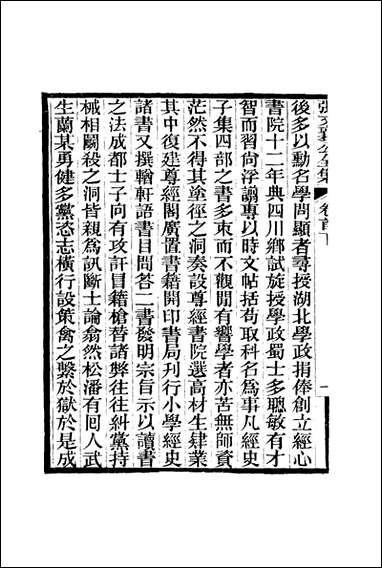 張文襄公全集 卷首下 一
後多以勳名學問顯者尋授湖北學政捐俸創立經心
書院十二年典四川鄉試旋授學政蜀士多聰敏有才
智而習尚浮謭專以時文帖括苟取科名為事凡經史
子集四部之書多束而不觀閒有嚮學者亦苦無師資
茫然不得其塗徑之洞奏設尊經書院選高材生肄業
其中復建尊經閣廣置書籍開印書局刊行小學經史
諸書又撰輶軒語書目問答二書發明宗旨示以讀書
之法成都士子向有攻訐冒籍槍替諸弊往往糾黨持
械相鬬殺之洞皆親為訊斷士論翕然松潘有囘人武
生蘭某勇健多黨恣志橫行設策禽之繫於獄於是成